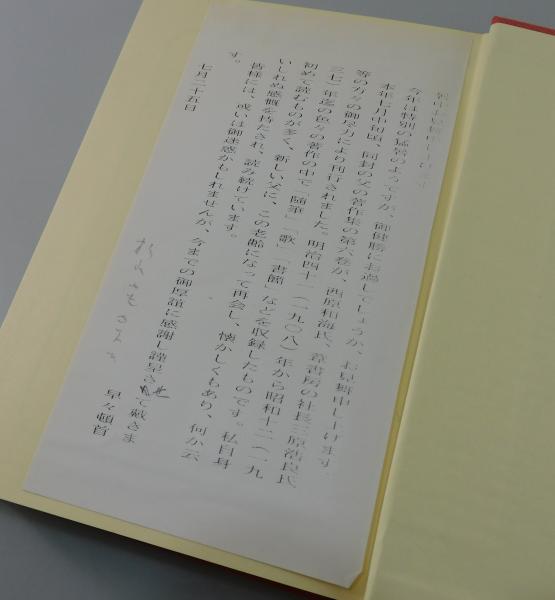 暑中お見舞申し上げます
今年は特別の猛暑のようですが、御健勝にお過しでしょうか、お見舞申し上げます。
本年七月中旬頃、同封の父の著作集の第六巻が、西原和海氏、葦書房の社長三原浩良氏
等の方々の御尽力により刊行されました。明治四十一(一九〇八)年から昭和十二(一九
三七)年迄の色々の著作の中で「随筆」「歌」「書簡」などを収録したものです。私自身
初めて読むものが多く、新しい父に、この老齢になって再会し、懐かしくもあり、何か云
いしれぬ感慨を持たされ、読み続けています。
皆様には、或いは御迷惑かもしれませんが、今までの御厚誼に感謝し謹呈させて戴きま
す。
早々頓首
七月二十五日